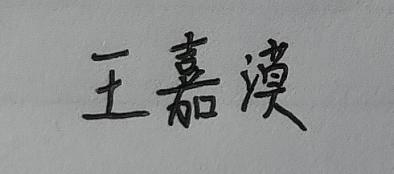 王嘉漠